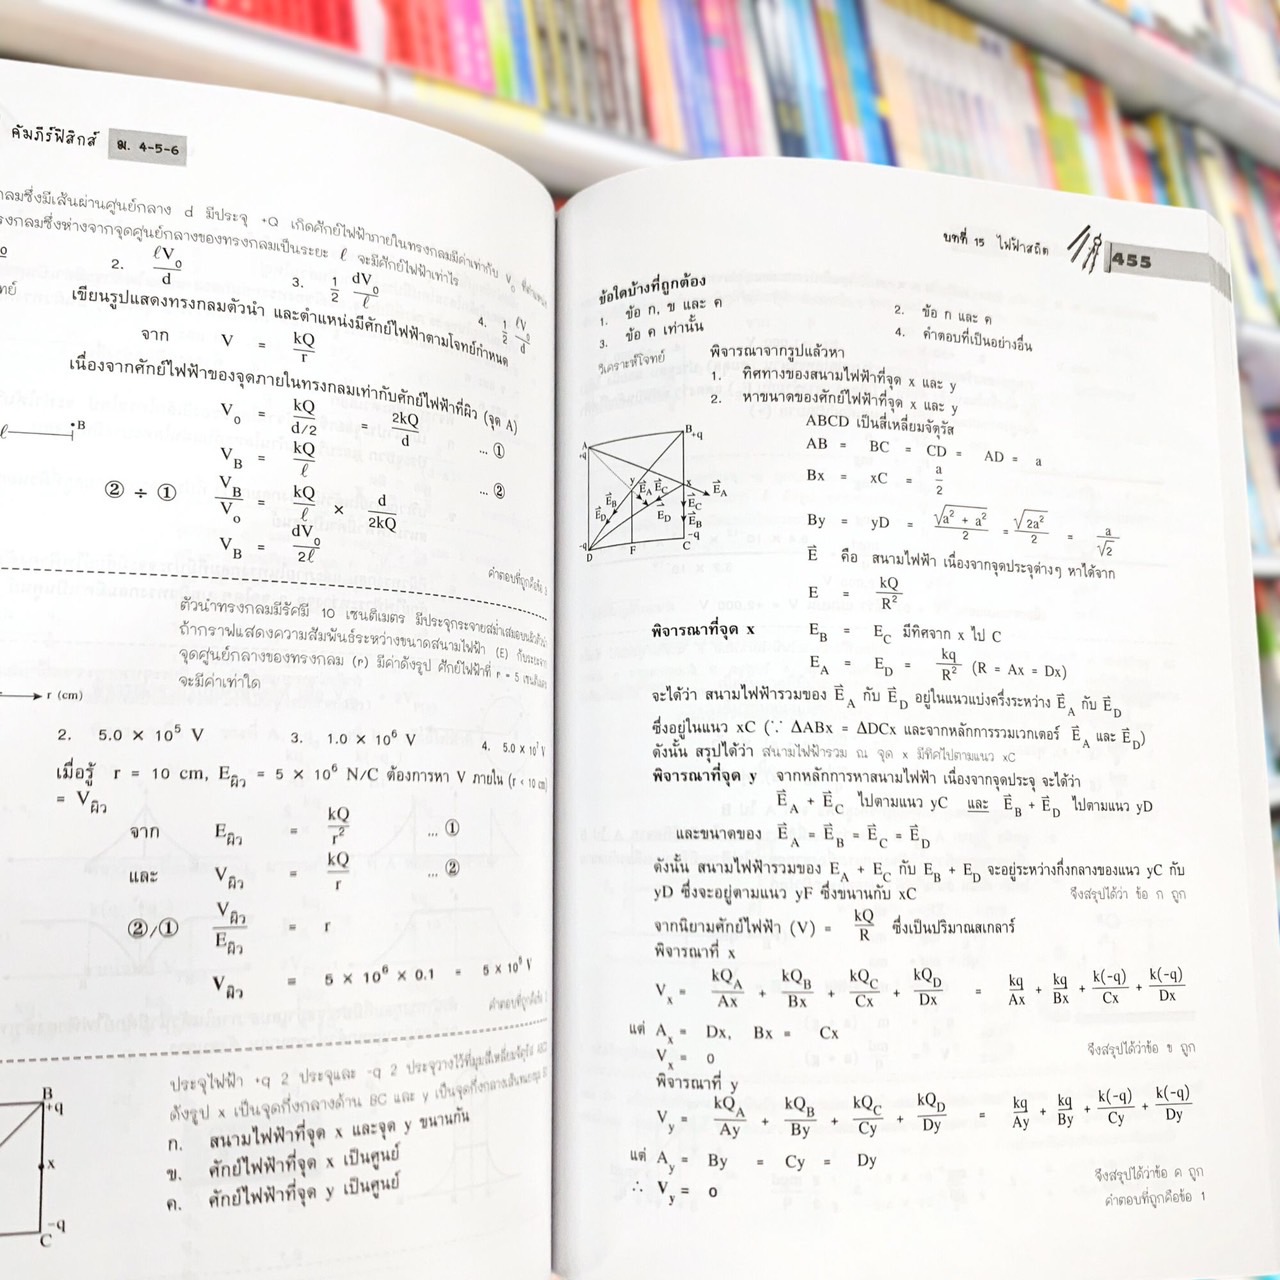 คัมภีร์ฟิสิกส์ ม. 4-5-6
กลมซึ่งมีเส้นผ่านศูนย์กลาง d มีประจุ +Q เกิดศักย์ไฟฟ้าภายในทรงกลมมีค่าเท่ากับ V₀ ที่ตำแหน่ง
รงกลมซึ่งห่างจากจุดศูนย์กลางของทรงกลมเป็นระยะ ℓ จะมีศักย์ไฟฟ้าเท่าไร
2. ℓV₀/d 3. 1/2 dV₀/ℓ 4. 1/2 ℓV₀/d
เขียนรูปแสดงทรงกลมตัวนำ และตำแหน่งมีศักย์ไฟฟ้าตามโจทย์กำหนด
จาก V = kQ/r
เนื่องจากศักย์ไฟฟ้าของจุดภายในทรงกลมเท่ากับศักย์ไฟฟ้าที่ผิว (จุด A)
V₀ = kQ/(d/2) = 2kQ/d ... ①
ℓ •B
V_B = kQ/ℓ ... ②
② ÷ ① V_B/V₀ = kQ/ℓ × d/2kQ
V_B = dV₀/2ℓ
คำตอบที่ถูกคือข้อ 3
ตัวนำทรงกลมมีรัศมี 10 เซนติเมตร มีประจุกระจายสม่ำเสมอบนผิวตัวนำ
ถ้ากราฟแสดงความสัมพันธ์ระหว่างขนาดสนามไฟฟ้า (E) กับระยะจาก
จุดศูนย์กลางของทรงกลม (r) มีค่าดังรูป ศักย์ไฟฟ้าที่ r = 5 เซนติเมตร
จะมีค่าเท่าใด
r (cm)
2. 5.0 × 10⁵ V 3. 1.0 × 10⁶ V 4. 5.0 × 10⁷ V
เมื่อรู้ r = 10 cm, E_ผิว = 5 × 10⁶ N/C ต้องการหา V ภายใน (r < 10 cm)
= V_ผิว
จาก E_ผิว = kQ/r² ... ①
และ V_ผิว = kQ/r ... ②
②/① V_ผิว/E_ผิว = r
V_ผิว = 5 × 10⁶ × 0.1 = 5 × 10⁵ V
คำตอบที่ถูกคือข้อ 2
ประจุไฟฟ้า +q 2 ประจุและ -q 2 ประจุวางไว้ที่มุมสี่เหลี่ยมจัตุรัส ABCD
ดังรูป x เป็นจุดกึ่งกลางด้าน BC และ y เป็นจุดกึ่งกลางเส้นทแยงมุม BD
ก. สนามไฟฟ้าที่จุด x และจุด y ขนานกัน
ข. ศักย์ไฟฟ้าที่จุด x เป็นศูนย์
ค. ศักย์ไฟฟ้าที่จุด y เป็นศูนย์
B
+q
x
-q
C
บทที่ 15 ไฟฟ้าสถิต 455
ข้อใดบ้างที่ถูกต้อง
1. ข้อ ก, ข และ ค 2. ข้อ ก และ ค
3. ข้อ ค เท่านั้น 4. คำตอบที่เป็นอย่างอื่น
วิเคราะห์โจทย์ พิจารณาจากรูปแล้วหา
1. ทิศทางของสนามไฟฟ้าที่จุด x และ y
2. หาขนาดของศักย์ไฟฟ้าที่จุด x และ y
ABCD เป็นสี่เหลี่ยมจัตุรัส
AB = BC = CD = AD = a
Bx = xC = a/2
By = yD = √(a² + a²)/2 = √(2a²)/2 = a/√2
A +q B +q
y x
E_A E_C E_A
E_B E_C
E_D E_D E_B
-q D F -q C
E คือ สนามไฟฟ้า เนื่องจากจุดประจุต่างๆ หาได้จาก
E = kQ/R²
พิจารณาที่จุด x E_B = E_C มีทิศจาก x ไป C
E_A = E_D = kq/R² (R = Ax = Dx)
จะได้ว่า สนามไฟฟ้ารวมของ E_A กับ E_D อยู่ในแนวแบ่งครึ่งระหว่าง E_A กับ E_D
ซึ่งอยู่ในแนว xC (∵ ΔABx = ΔDCx และจากหลักการรวมเวกเตอร์ E_A และ E_D)
ดังนั้น สรุปได้ว่า สนามไฟฟ้ารวม ณ จุด x มีทิศไปตามแนว xC
พิจารณาที่จุด y จากหลักการหาสนามไฟฟ้า เนื่องจากจุดประจุ จะได้ว่า
E_A + E_C ไปตามแนว yC และ E_B + E_D ไปตามแนว yD
และขนาดของ E_A = E_B = E_C = E_D
ดังนั้น สนามไฟฟ้ารวมของ E_A + E_C กับ E_B + E_D จะอยู่ระหว่างกึ่งกลางของแนว yC กับ
yD ซึ่งจะอยู่ตามแนว yF ซึ่งขนานกับ xC จึงสรุปได้ว่า ข้อ ก ถูก
จากนิยามศักย์ไฟฟ้า (V) = kQ/R ซึ่งเป็นปริมาณสเกลาร์
พิจารณาที่ x
V_x = kQ_A/Ax + kQ_B/Bx + kQ_C/Cx + kQ_D/Dx = kq/Ax + kq/Bx + k(-q)/Cx + k(-q)/Dx
แต่ A_x = Dx, Bx = Cx
V_x = 0 จึงสรุปได้ว่าข้อ ข ถูก
พิจารณาที่ y
V_y = kQ_A/Ay + kQ_B/By + kQ_C/Cy + kQ_D/Dy = kq/Ay + kq/By + k(-q)/Cy + k(-q)/Dy
แต่ A_y = By = Cy = Dy
∴ V_y = 0 จึงสรุปได้ว่าข้อ ค ถูก
คำตอบที่ถูกคือข้อ 1